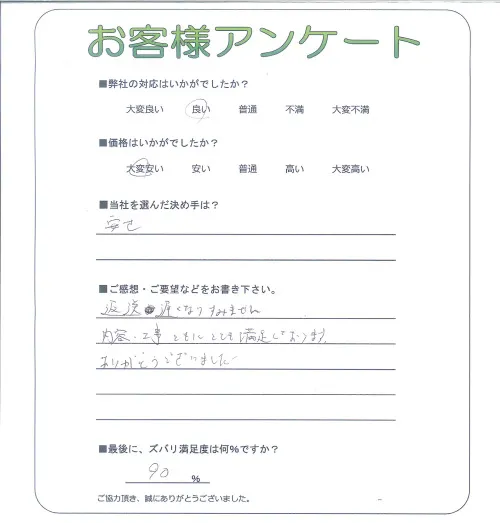 お客様アンケート
■弊社の対応はいかがでしたか？
大変良い 良い 普通 不満 大変不満
■価格はいかがでしたか？
大変安い 安い 普通 高い 大変高い
■当社を選んだ決め手は？
安さ
■ご感想・ご要望などをお書き下さい。
返送遅くなりすみません
内容・工事ともにとても満足しております。
ありがとうございました
■最後に、ズバリ満足度は何%ですか？
90 %
ご協力頂き、誠にありがとうございました。